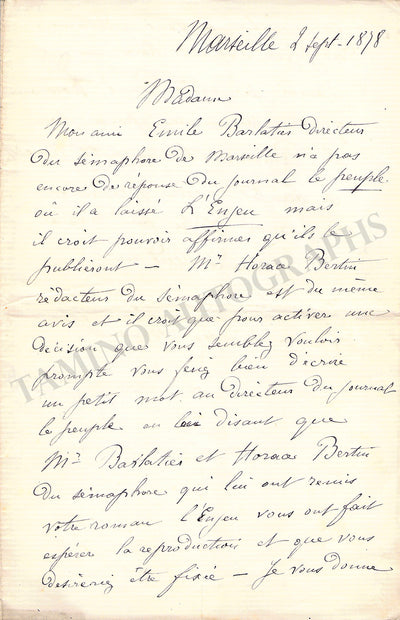 Marseille 2 Sept - 1878
Madame
Mon ami Emile Barlatier directeur
du sémaphore de Marseille n'a pas
encore de réponse du journal le peuple
où il a laissé L'Enjeu mais
il croit pouvoir affirmer qu'ils le
publieront — Mr Horace Bertin
rédacteur du Sémaphore est du même
avis et il croit que pour activer une
décision que vous semblez vouloir
prompte vous feriez bien d'écrire
un petit mot au directeur du journal
le peuple en lui disant que
Mrs Barlatier et Horace Bertin
du sémaphore qui lui ont remis
votre roman l'Enjeu vous ont fait
espérer la reproduction et que vous
desireriez être fixée — Je vous donne
TAMINO AUTOGRAPHS